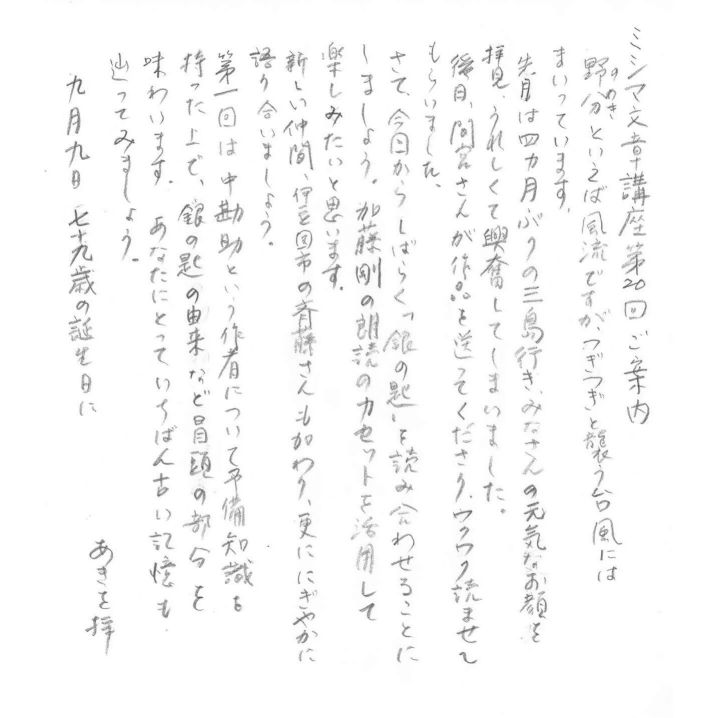 ミシマ文章講座第20回ご案内
野分といえば風流ですが、つぎつぎと襲う台風には
のわき
まいっています。
先月は四カ月ぶりの三島行き、みなさんの元気なお顔を
拝見、うれしくて興奮してしまいました。
後日、間宮さんが作品を送ってくださり、ワクワク読ませて
もらいました。
さて、今回からしばらく「銀の匙」を読み合わせることに
しましょう。加藤剛の朗読のカセットを活用して
楽しみたいと思います。
新しい仲間、伊豆国市の斉藤さんも加わり、更ににぎやかに
語り合いましょう。
第一回は中勘助という作者について予備知識を
持った上で、銀の匙の由来など冒頭の部分を
味わいます。あなたにとっていちばん古い記憶も
辿ってみましょう。
九月九日 七十九歳の誕生日に
あきを拝